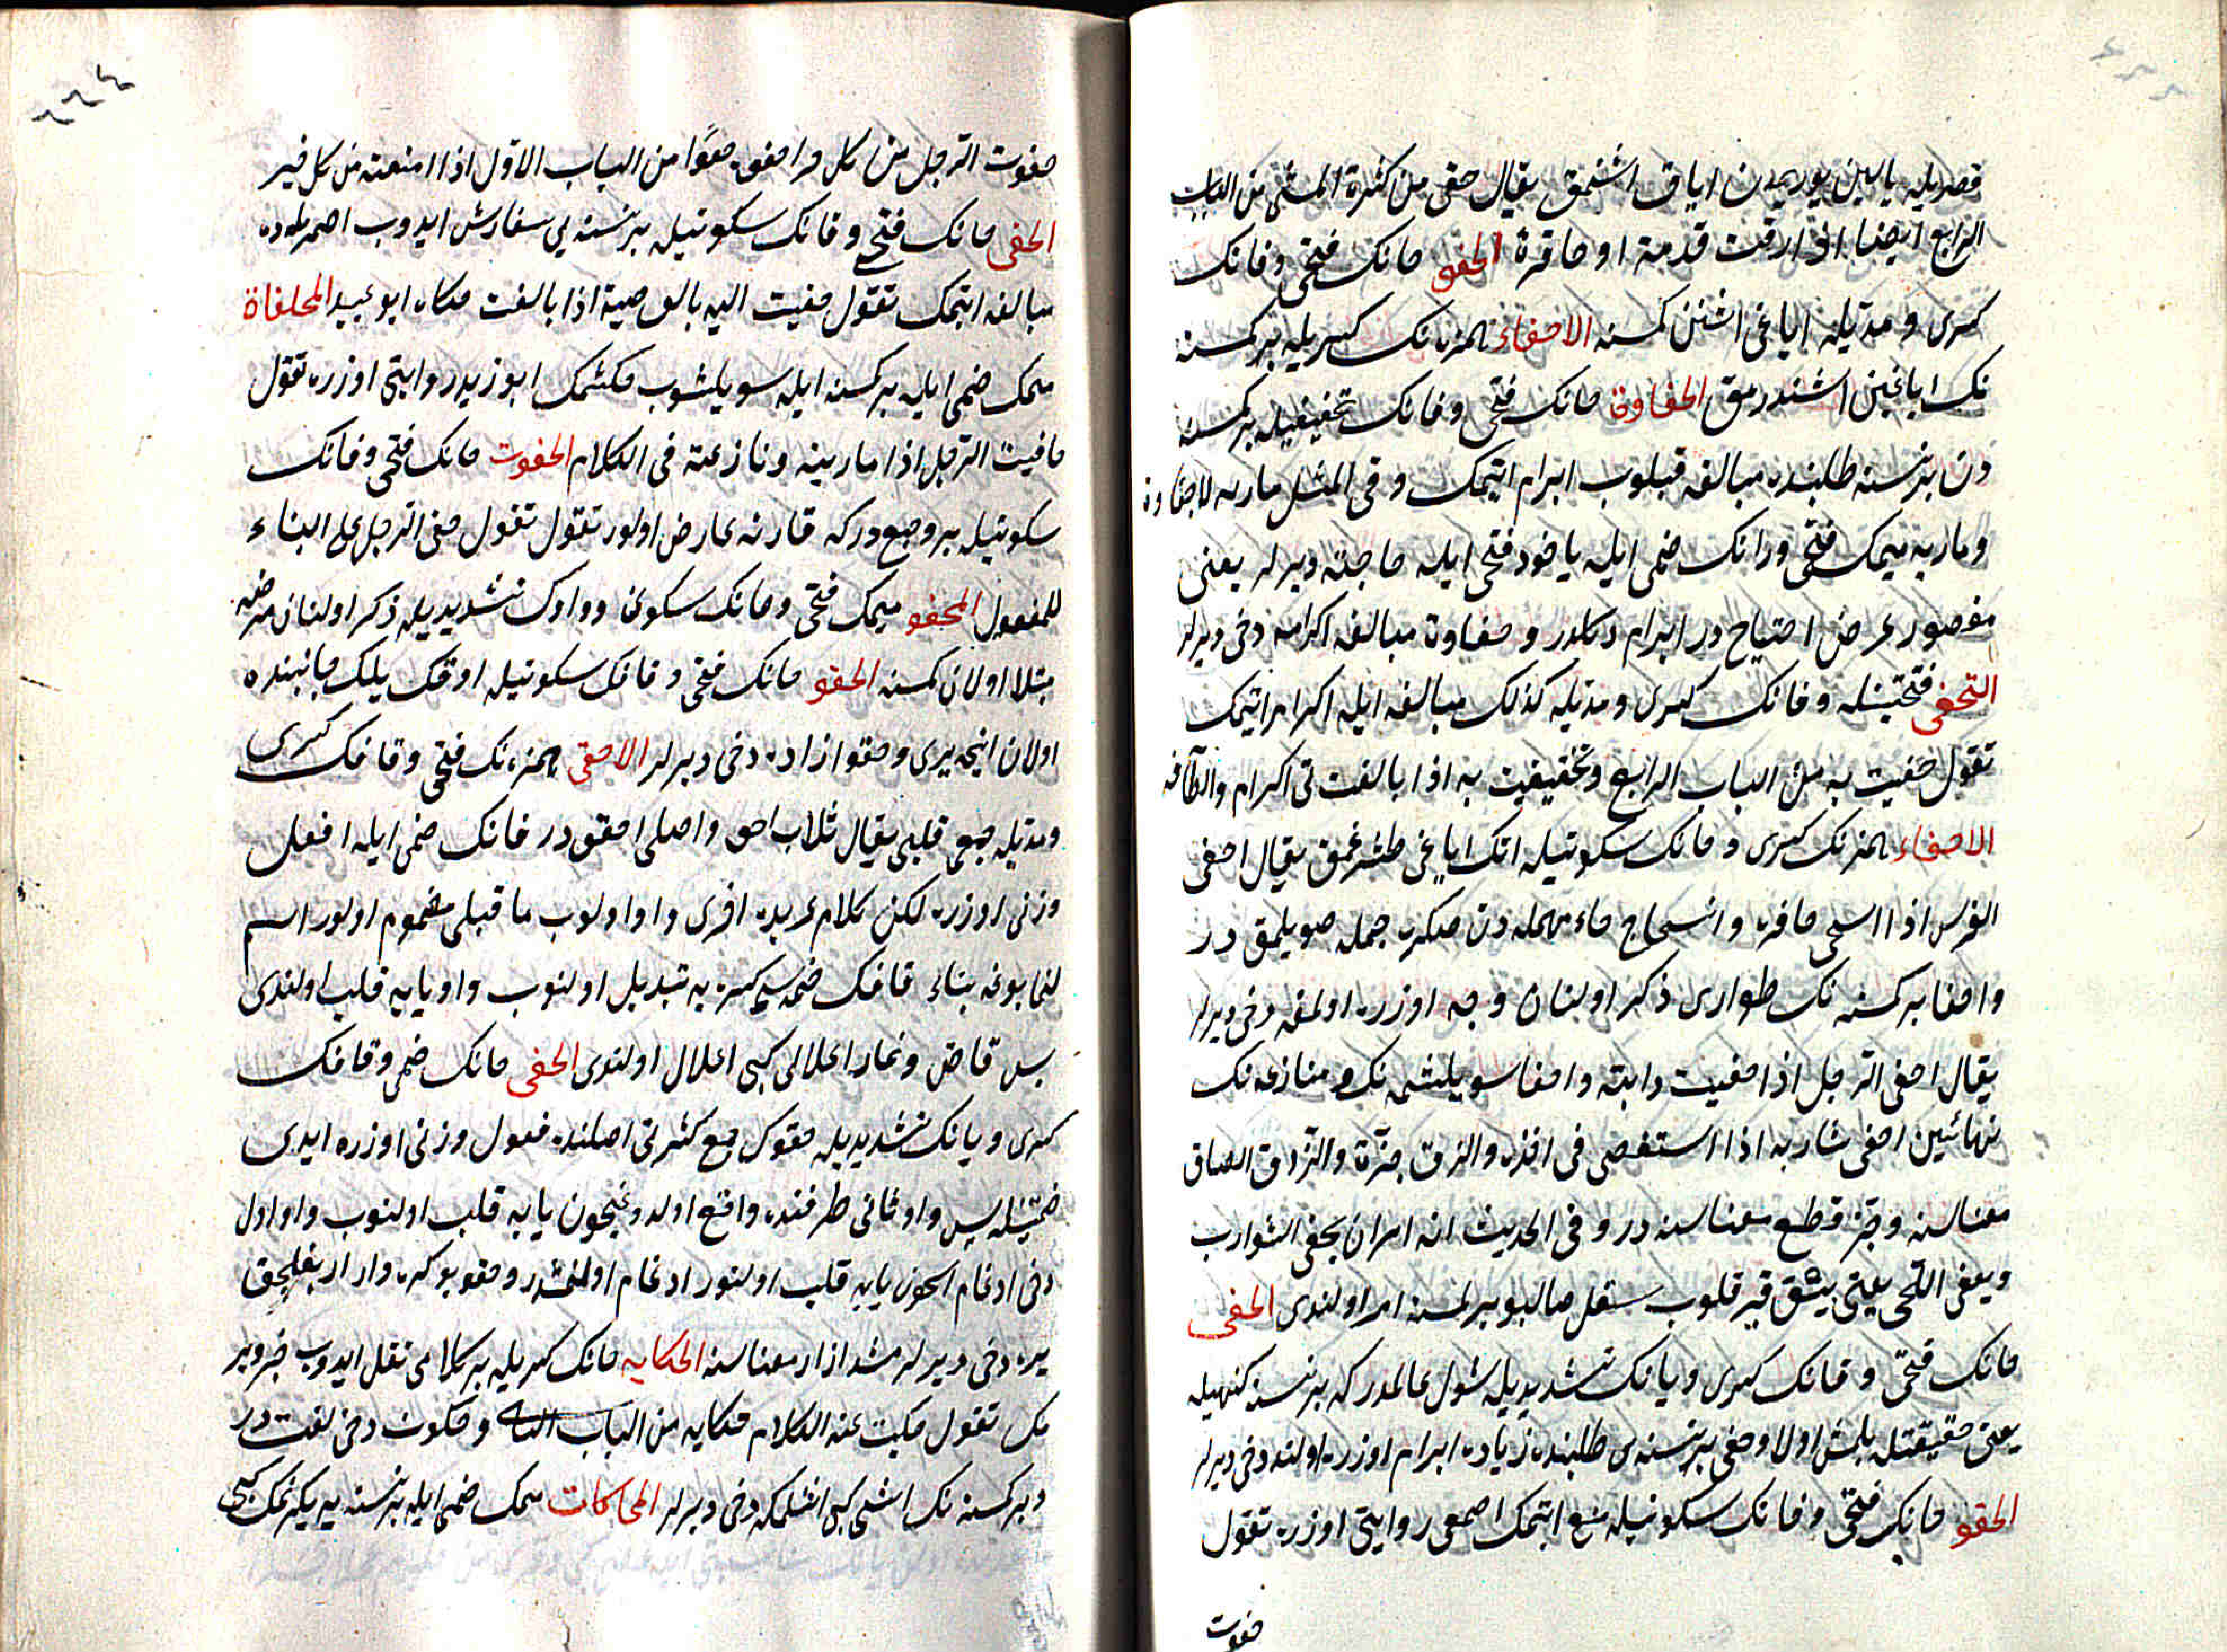 قصريله يالين يوريمدن اياق اشنمق يقال حفى من كثرة المشى من الباب
الرابع ايضا اى ارقت قدمه او حافره الحفى حانك فتحى وفانك
كسرى ومدّيله اياغى اشنن كمسنه الاحفاء همزه نك كسريله بر كمسنه
نك اياغين اشندرمق الحفاوة حانك فتحى وفانك تخفيفيله بر كمسنه
دن بر نسنه طلبنده مبالغه قيلوب ابرام ايتمك وفى المثل مأربه لا حفاوة
ومأربه ميمك فتحى ورانك ضمى ايله ياخود فتحى ايله حاجته ديرلر يعنى
مقصود عرض احتياج در ابرام دكلدر وحفاوة مبالغه اكرامه دخى ديرلر
التحفى فتحتينله وفانك كسرى ومدّيله كذلك مبالغه ايله اكرام ايتمك
تقول حفيت به من الباب الرابع وتحفيت به اذا بالغت فى اكرامه والطافه
الاحفاء همزنك كسرى وحانك سكونيله اتك اياغى طشرغمق يقال احفى
الفرس اذا انسحج حافره وانسحاج حاء مهمله دن صكره جيمله صويلمق در
واحفا بر كمسنه نك طوارى ذكر اولنان وجه اوزره اولمغه دخى ديرلر
يقال احفى الرجل اذا حفيت دابته واحفا سويلشمه نك ومنازعه نك
نهائتين احفى شاربه اذا استقصى فى اخذه والزق جزّه والزق الصاق
معناسنه وجز قطع معناسنه در وفى الحديث انه امر ان يحفى الشوارب
ويعفى اللحى يعنى بيئق قيرقلوب سقل صاليويرلمسنه امر اولندى الحفى
حانك فتحى وفانك كسرى ويانك تشديديله شول عالمدر كه بر نسنه كنهيله
يعنى حقيقتله بلمش اولا وحفى بر نسنه ى طلبنده زياده ابرام اوزره اولنه دخى ديرلر
الحفو حانك فتحى وفانك سكونيله منع ايتمك اصمعى روايتى اوزره تقول
حفوت
حفوت الرجل من كل احفوه حفوًا من الباب الاوّل اذا امنعته من كل خير
الحفى حانك فتحى وفانك سكونيله بر نسنه يى سفارش ايدوب اصمرلمده
مبالغه ايتمك تقول حفيت اليه بالوصية اذا بالغت حكاه ابو عبيد المحافاة
ميمك ضمى ايله بر كمسنه ايله سويلشوب چكشمك ابو زيد روايتى اوزره تقول
حافيت الرجل اذا ماريته ونازعته فى الكلام الحفوت حانك فتحى وفانك
سكونيله بر وجع در كه قارنه عارض اولور تقول تقول حقى الرجل على البناء
للمفعول المحفو ميمك فتحى وحانك سكونى وواوك تشديديله ذكر اولنان مرضه
مبتلا اولان كمسنه الحقو حانك فتحى وقافك سكونيله اوقك يلك جانبنده
اولان اينجه يرى وحقو ازاره دخى ديرلر الاحقى همزه نك فتحى وقافك كسرى
ومدّيله جمع قلبى يقال ثلاث احق واصلى احقو در قافك ضمى ايله افعل
وزنى اوزره لكن كلام عربده اخرى واو اولوب ما قبلى مضموم اولور اسم
لنما بوغه بناءً قافك ضمه سى كسره يه تبديل اولنوب واو يايه قلب اولندى
پس قاض وغاز اعلالى كبى اعلال اولندى الحقى حانك ضمى وقافك
كسرى ويانك تشديديله حقوك جمع كثرتى اصلنده فعول وزنى اوزره ايدى
ضمتينله پس واو ثانى طرفنده واقع اولدوغيچون يايه قلب اولنوب واو اول
دخى ادغام ايچون يايه قلب اولنور ادغام اولنمشدر وحقو بو كره وار ار بغليجق
يره دخى ديرلر مشد ازار معناسنه الحكايه حانك كسريله بر كلامى نقل ايدوب خبر وير
مك تقول حكيت عنه الكلام حكاية من الباب الثانى وحكوت دخى لغت در
وبر كمسنه نك اشى كبى اشلمكه دخى ديرلر المحاكات ميمك ضمى ايله بر نسنه يه بكزمك كبى